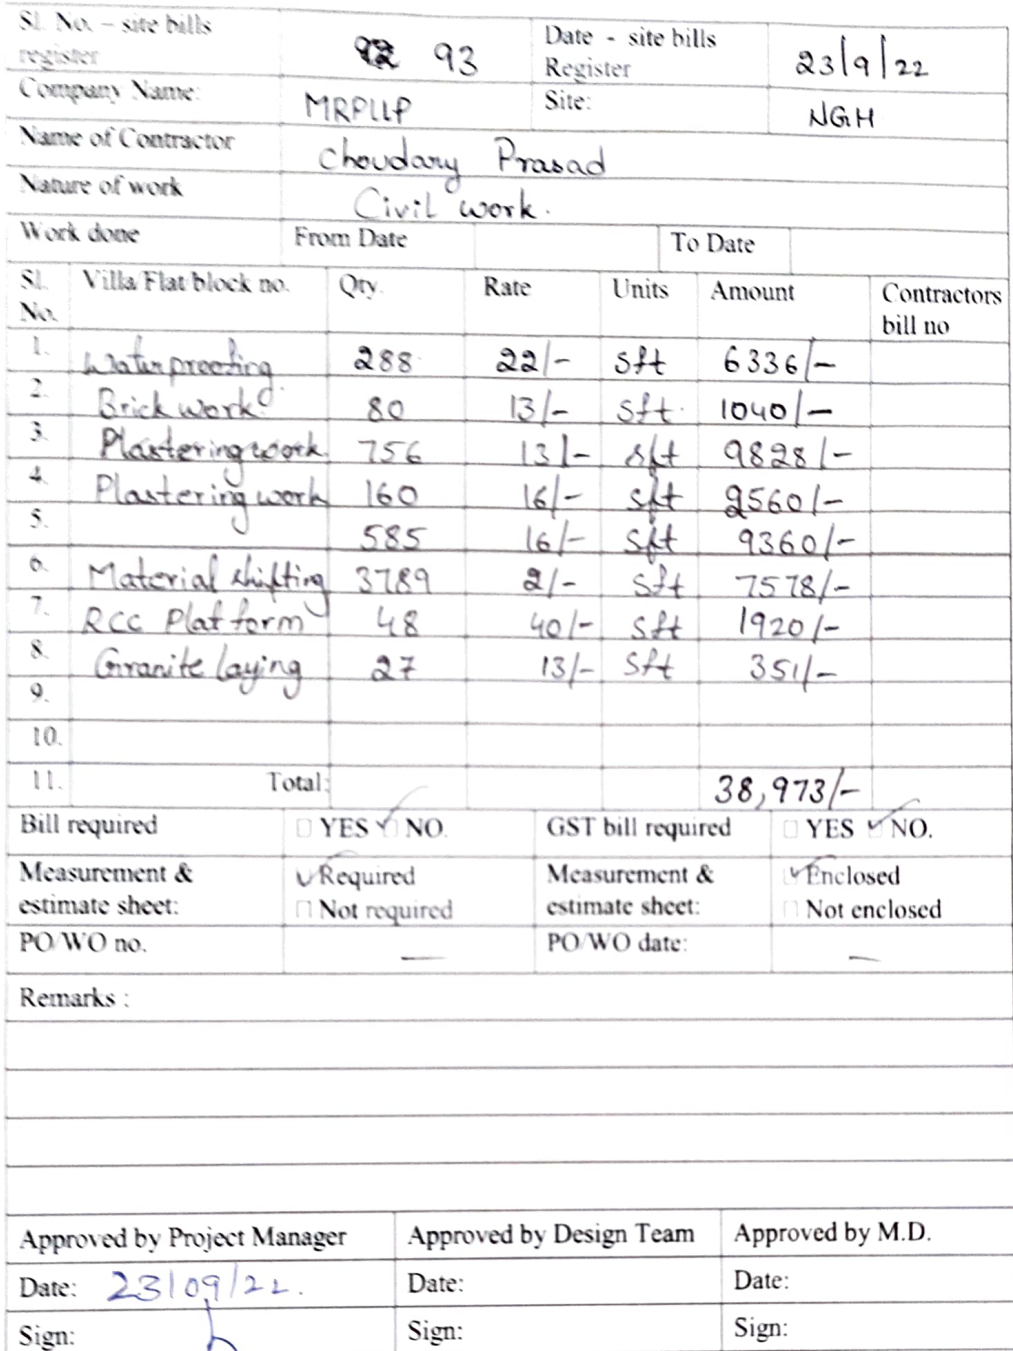 Sl. No. – site bills register 93 Date - site bills Register 23/9/22
Company Name: MRPLLP Site: NGH
Name of Contractor Choudary Prasad
Nature of work Civil work.
Work done From Date To Date
Sl. No. Villa/Flat/block no. Qty. Rate Units Amount Contractors bill no
1. Waterproofing 288 22/- Sft 6336/-
2. Brick work 80 13/- Sft. 1040/-
3. Plastering work 756 13/- sft 9828/-
4. Plastering work 160 16/- sft 2560/-
5. 585 16/- sft 9360/-
6. Material shifting 3789 2/- Sft 7578/-
7. RCC Platform 48 40/- Sft 1920/-
8. Granite laying 27 13/- Sft 351/-
9.
10.
11. Total: 38,973/-
Bill required YES NO. GST bill required YES NO.
Measurement & estimate sheet: Required Measurement & estimate sheet: Enclosed
Not required Not enclosed
PO/WO no. — PO/WO date: —
Remarks :
Approved by Project Manager Approved by Design Team Approved by M.D.
Date: 23/09/22. Date: Date:
Sign: Sign: Sign: